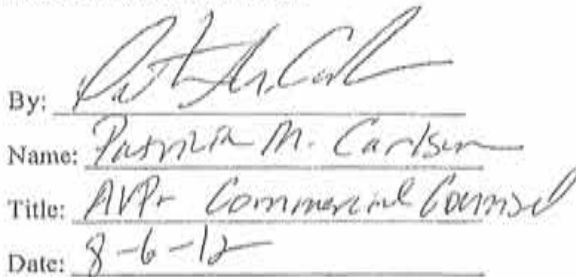 By:
Name: Patricia M. Carlsen
Title: AVP- Commercial Counsel
Date: 8-6-12